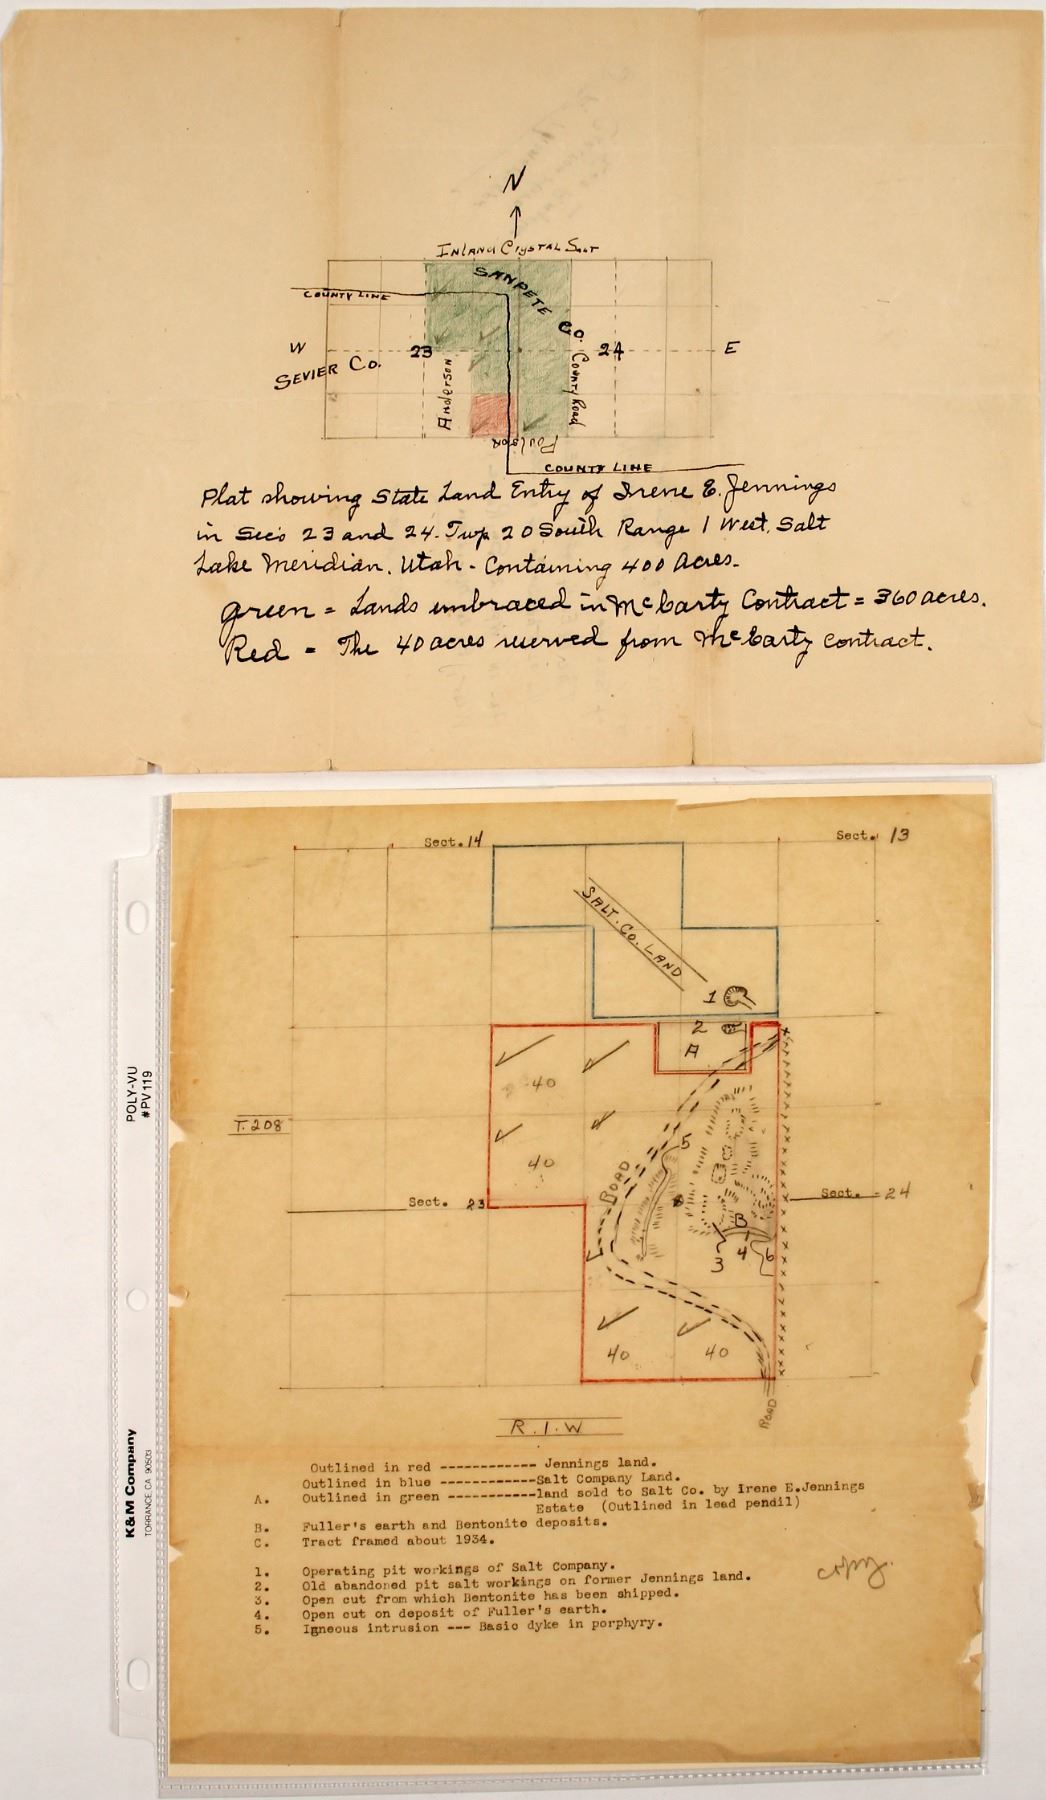 N
INLAND CRYSTAL SALT
SANPETE CO.
COUNTY LINE
W
23
24
E
SEVIER CO.
Anderson
County Road
Poulson
COUNTY LINE
Plat showing State Land Entry of Irene E. Jennings
in Sec's 23 and 24. Twp 20 South Range 1 West, Salt
Lake Meridian. Utah - Containing 400 Acres.
Green = Lands embraced in McCarty Contract = 360 acres.
Red = The 40 acres reserved from McCarty contract.
Sect. 14
Sect. 13
SALT. CO. LAND
1
2
A
40
40
T.20S
5
ROAD
Sect. 23
Sect. 24
B
3
4
6
40
40
ROAD
R.1.W
Outlined in red ------------ Jennings land.
Outlined in blue ------------Salt Company Land.
A. Outlined in green -----------land sold to Salt Co. by Irene E.Jennings
Estate (Outlined in lead pendil)
B. Fuller's earth and Bentonite deposits.
C. Tract framed about 1934.
1. Operating pit workings of Salt Company.
2. Old abandoned pit salt workings on former Jennings land.
3. Open cut from which Bentonite has been shipped.
4. Open cut on deposit of Fuller's earth.
5. Igneous intrusion --- Basic dyke in porphyry.
copy.
POLY-VU
#PV119
K&M Company
TORRANCE, CA 90503